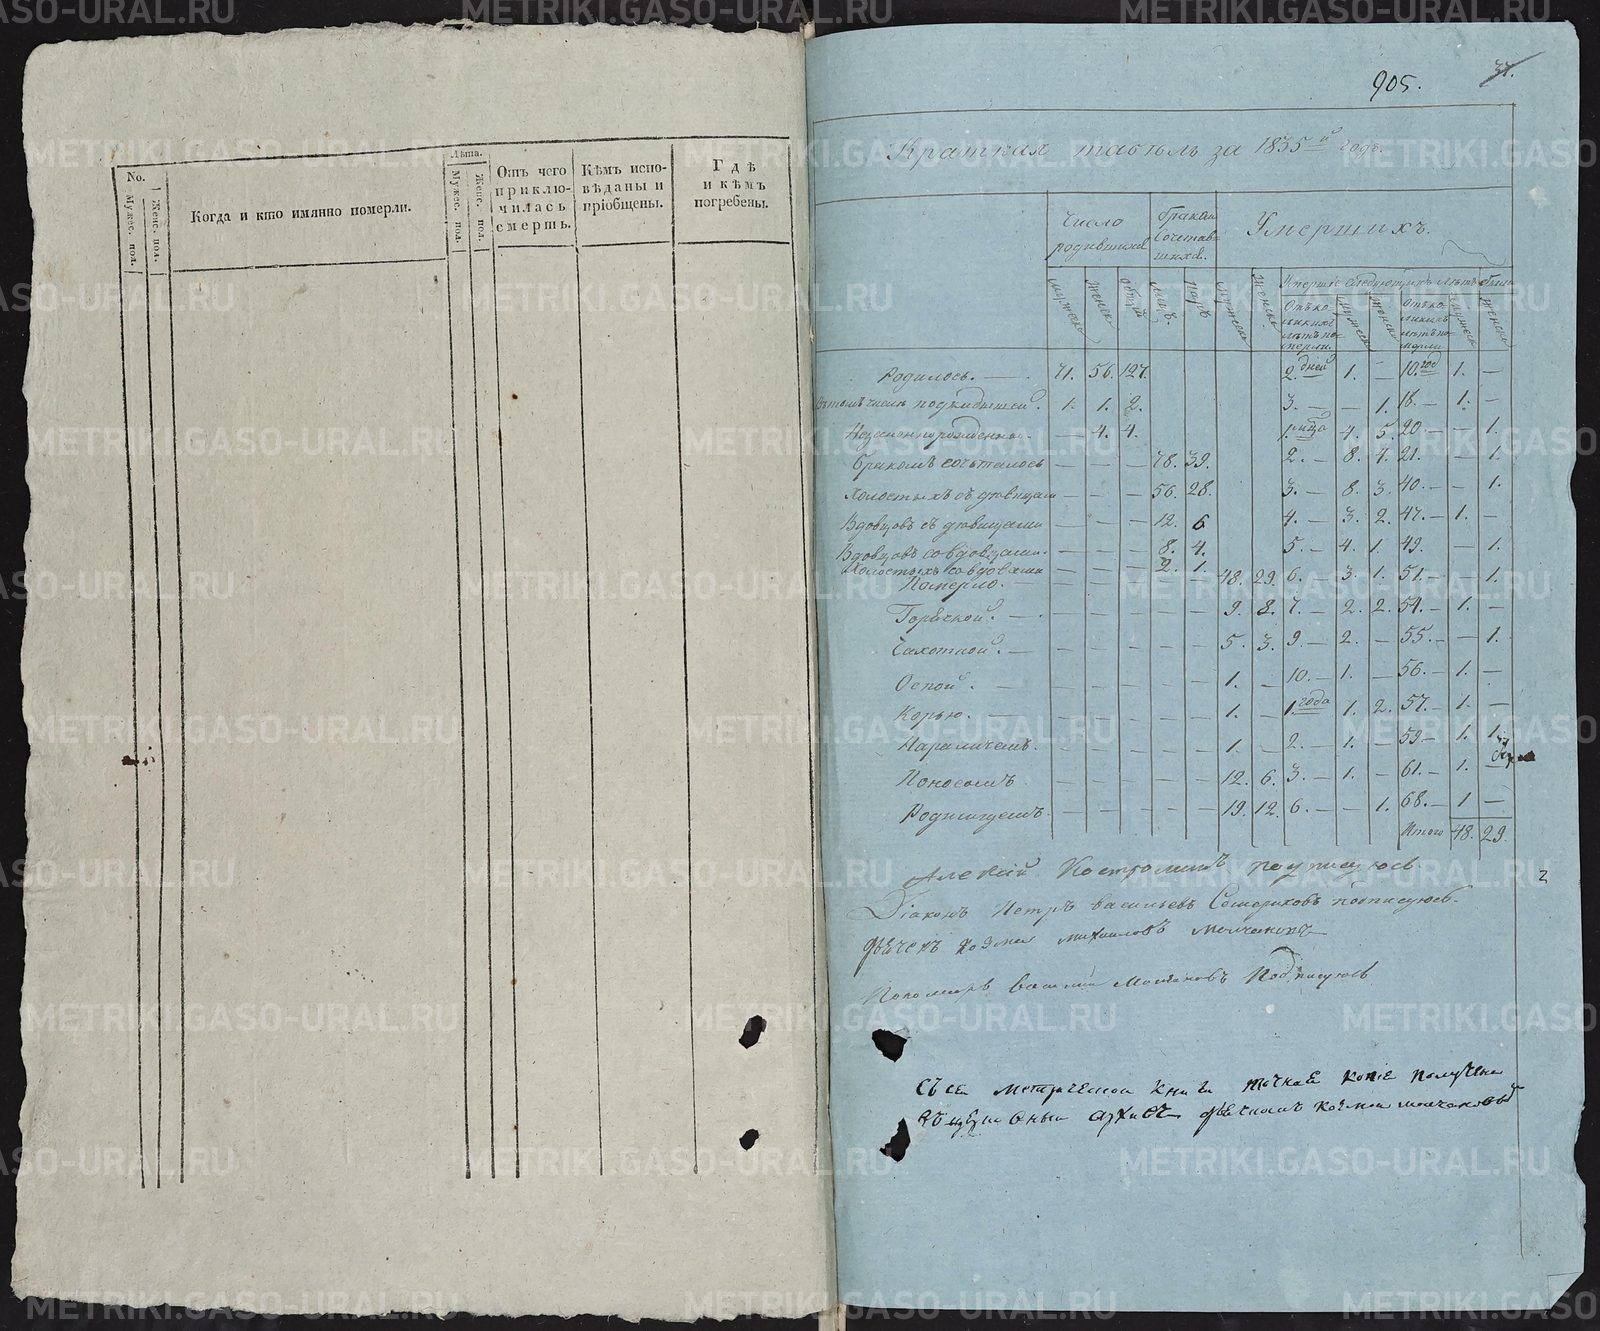 No.
Мужес. пол.
Женс. пол.
Когда и кто имянно померли.
Лѣта.
Мужес. пол.
Женс. пол.
Отъ чего
приклю-
чилась
смерть.
Кѣмъ испо-
вѣданы и
пріобщены.
Гдѣ
и кѣмъ
погребены.
905.
37.
Краткая табель за 1835й годъ.
Число
родившихся
бракомъ
сочетав-
шихся.
Умершихъ.
мужеска
женска
обоего
лицъ.
паръ
мужеска
женска
Отъ ко-
ликихъ
лѣтъ по-
мерли.
мужеска
женска
Отъ ко-
ликихъ
лѣтъ по-
мерли
мужеска
женска
Родилось. — 71. 56. 127. 2. дней 1. — 10. год 1. —
въ томъ числѣ подкидышей. 1. 1. 2. 3. — — 1. 18. — 1. —
Незаконнорожденныхъ — 4. 4. 1. мѣсца 4. 5. 20. — — 1.
бракомъ сочеталось — — — 78. 39. 2. — 8. 4. 21. — — 1.
Холостыхъ съ дѣвицами — — — 56. 28. 3. — 8. 3. 40. — — 1.
Вдовцовъ съ дѣвицами — — — 12. 6 4. — 3. 2. 47. — 1. —
Вдовцовъ со вдовами. — — — 8. 4. 5. — 4. 1. 49. — — 1.
Холостыхъ со вдовами — — — 2. 1.
Померло. — — — — — 48. 29. 6. — 3. 1. 51. — — 1.
Горячкой. — — — — — — 9. 8. 7. — 2. 2. 54. — 1. —
Чахоткой. — — — — — — 5. 3. 9. — 2. — 55. — — 1.
Оспой. — — — — — — 1. — 10. — 1. — 56. — 1. —
Корью. — — — — — — 1. — 1. года 1. 2. 57. — 1. —
Параличемъ. — — — — — 1. — 2. — 1. — 59 — 1. 1.
Поносомъ — — — — — 12. 6. 3. — 1. — 61. — 1. —
Родимцемъ. — — — — — 19. 12. 6. — — 1. 68. — 1 —
Итого 48. 29.
Костроминъ подписуюсь
Діаконъ Петръ Васильевъ подписуюсь.
Дьячекъ Козма Михаиловъ Молчановъ
Пономарь Василій Подписуюсь
Съ сей метрической книги точная копіе получена
архивъ дьячкомъ Козмой Молчановый
METRIKI.GASO-URAL.RU